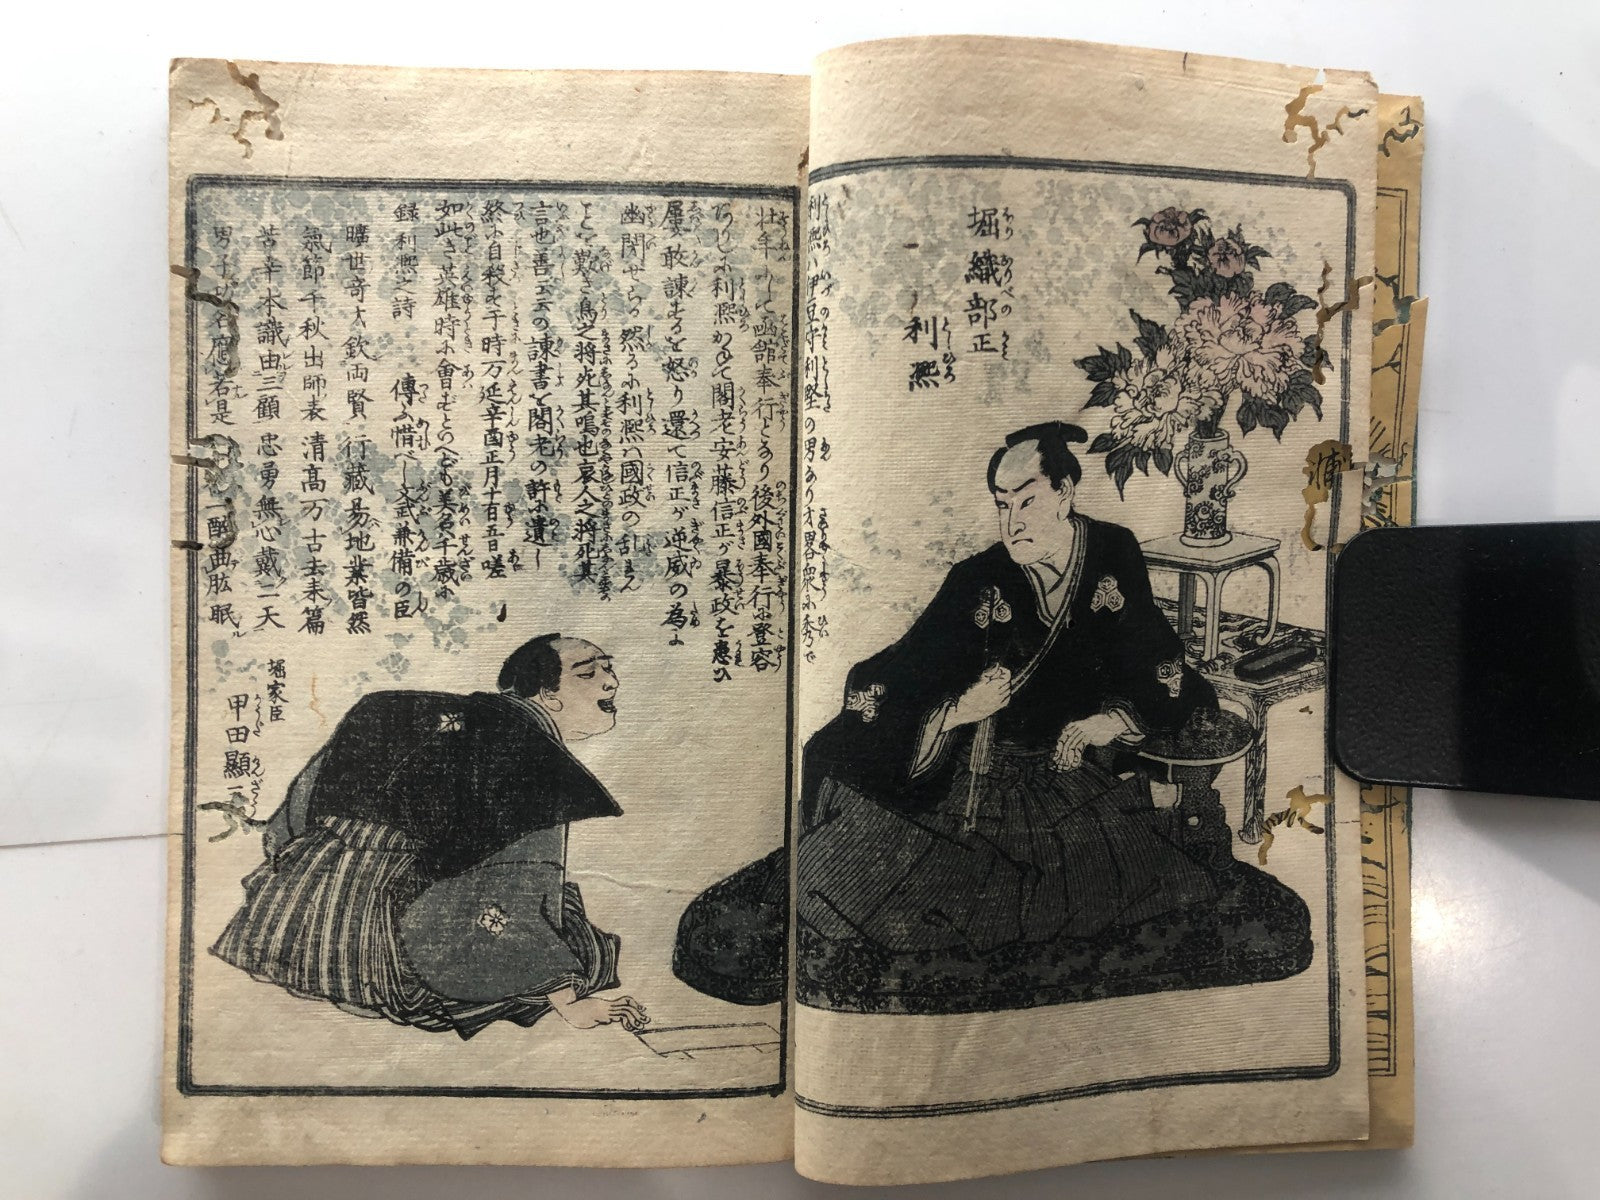 堀織部正
利熙
利熙ハ伊豆守利堅の男なり才畧衆に秀で
壮年にして函館奉行となり後外國奉行に登容
ありしに利熙かねて閣老安藤信正が暴政を患ひ
屢敢諫するを怒り還て信正が逆威の為に
幽閉せらる然るに利熙ハ國政の乱まん
ことを歎き鳥之將死其鳴也哀人之將死其
言也善云云の諫書を閣老の許に遺し
終に自殺せり于時万延辛酉正月十有五日嗟
如此き英雄時に會せずといへども美名千歳に
傳ふ惜べし文武兼備の臣
録利熙之詩
曠世奇才欽両賢 行藏易地業皆然
氣節千秋出師表 清高万古去来篇
苦辛本識由三顧 忠勇無心戴二天
男子
一醉曲肱眠
堀家臣
甲田顯三